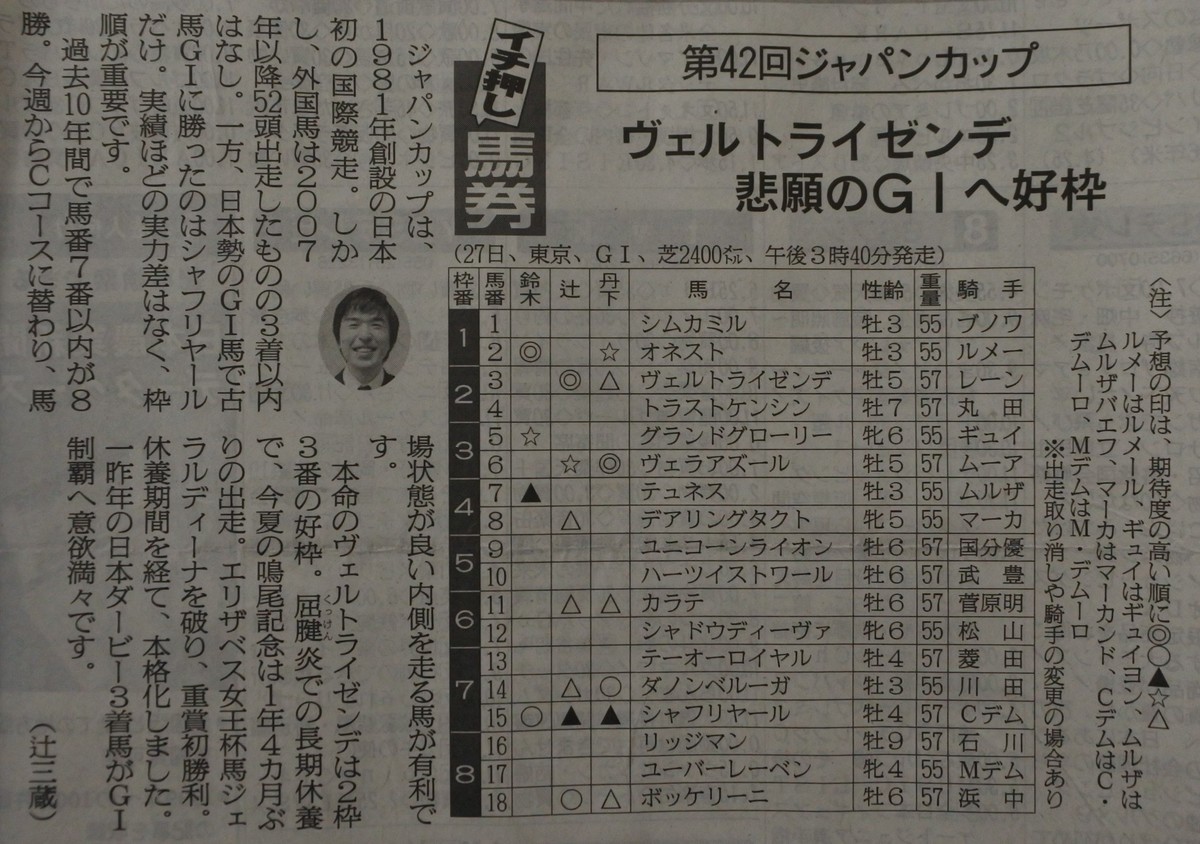 第42回ジャパンカップ
ヴェルトライゼンデ
悲願のGⅠへ好枠
イチ押し
馬券
(27日、東京、GⅠ、芝2400㍍、午後3時40分発走)
枠番 馬番 鈴木 辻 丹下 馬名 性齢 重量 騎手
1 1 シムカミル 牡3 55 ブノワ
2 ◎ ☆ オネスト 牡3 55 ルメー
2 3 ◎ △ ヴェルトライゼンデ 牡5 57 レーン
4 トラストケンシン 牡7 57 丸田
3 5 ☆ グランドグローリー 牝6 55 ギュイ
6 ☆ ◎ ヴェラアズール 牡5 57 ムーア
4 7 ▲ テュネス 牡3 55 ムルザ
8 △ デアリングタクト 牝5 55 マーカ
5 9 ユニコーンライオン 牡6 57 国分優
10 ハーツイストワール 牡6 57 武豊
6 11 △ △ カラテ 牡6 57 菅原明
12 シャドウディーヴァ 牝6 55 松山
7 13 テーオーロイヤル 牡4 57 菱田
14 △ ○ ダノンベルーガ 牡3 55 川田
15 ○ ▲ ▲ シャフリヤール 牡4 57 Cデム
8 16 リッジマン 牡9 57 石川
17 ユーバーレーベン 牝4 55 Mデム
18 ○ △ ボッケリーニ 牡6 57 浜中
〈注〉予想の印は、期待度の高い順に◎○▲☆△
ルメーはルメール、ギュイはギュイヨン、ムルザは
ムルザバエフ、マーカはマーカンド、CデムはC・
デムーロ、MデムはM・デムーロ
※出走取り消しや騎手の変更の場合あり
ジャパンカップは、
1981年創設の日本
初の国際競走。しか
し、外国馬は2007
年以降52頭出走したものの3着以内
はなし。一方、日本勢のGⅠ馬で古
馬GⅠに勝ったのはシャフリヤール
だけ。実績ほどの実力差はなく、枠
順が重要です。
過去10年間で馬番7番以内が8
勝。今週からCコースに替わり、馬
場状態が良い内側を走る馬が有利で
す。
本命のヴェルトライゼンデは2枠
3番の好枠。屈腱炎での長期休養
くっけん
で、今夏の鳴尾記念は1年4カ月ぶ
りの出走。エリザベス女王杯馬ジェ
ラルディーナを破り、重賞初勝利。
休養期間を経て、本格化しました。
一昨年の日本ダービー3着馬がGⅠ
制覇へ意欲満々です。
(辻三蔵)